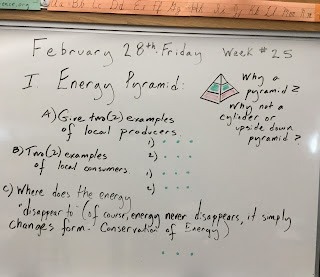 February 28th Friday Week #25
I. Energy Pyramid:
Why a
pyramid?
Why not a
cylinder or
upside down
pyramid?
A) Give two (2) examples
of local producers.
1)
2)
B) Two (2) examples
of local consumers
1)
2)
C) Where does the energy
"disappear to" (of course, energy never disappears, it simply
changes form. Conservation of Energy)